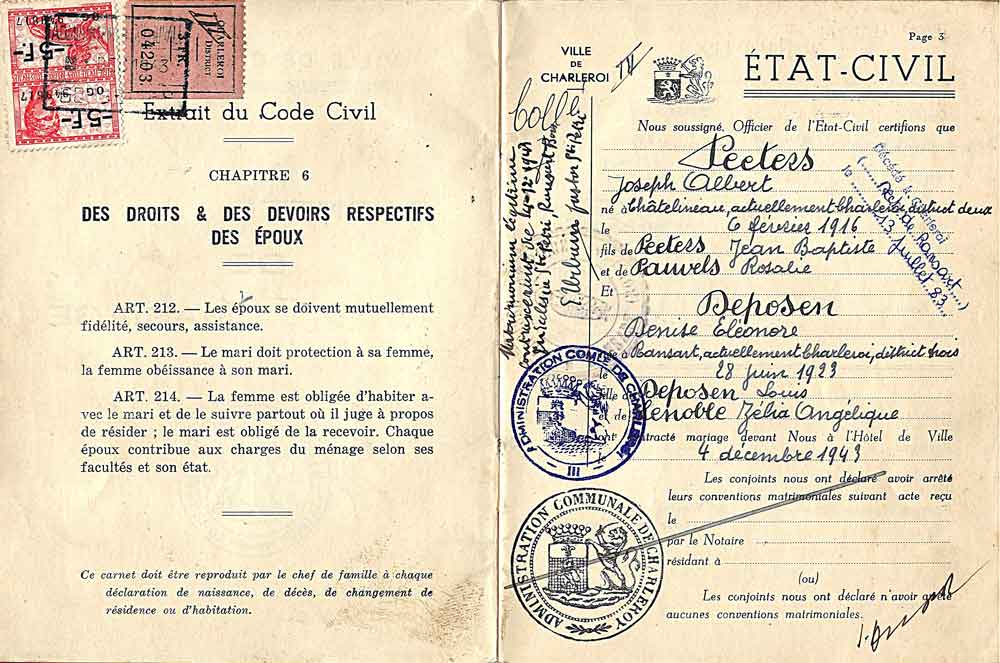 -5F.-
-5F.-
CHARLEROI
DISTRICT
3 FR.
04203
Extrait du Code Civil
CHAPITRE 6
DES DROITS & DES DEVOIRS RESPECTIFS
DES ÉPOUX
ART. 212. — Les époux se doivent mutuellement
fidélité, secours, assistance.
ART. 213. — Le mari doit protection à sa femme,
la femme obéissance à son mari.
ART. 214. — La femme est obligée d'habiter a-
vec le mari et de le suivre partout où il juge à propos
de résider ; le mari est obligé de la recevoir. Chaque
époux contribue aux charges du ménage selon ses
facultés et son état.
Ce carnet doit être reproduit par le chef de famille à chaque
déclaration de naissance, de décès, de changement de
résidence ou d'habitation.
Page 3
VILLE
DE
CHARLEROI
IV
ÉTAT-CIVIL
Matrimonium legitime
Nous soussigné, Officier de l'Etat-Civil certifions que
Peeters
Joseph Albert
né à Châtelineau, actuellement Charleroi, district deux
le 6 février 1916
fils de Peeters Jean Baptiste
et de Pauwels Rosalie
Et
Deposen
Denise Eléonore
née à Ransart, actuellement Charleroi, district trois
le 28 juin 1923
fille de Deposen Louis
et de Lenoble Zélia Angélique
ont contracté mariage devant Nous à l'Hôtel de Ville
le 4 décembre 1943
Décédé à Charleroi
(Sect. de Ransart)
le 13 juillet 83
ADMINISTRATION COMLE DE CHARLEROI
III
Les conjoints nous ont déclaré avoir arrêté
leurs conventions matrimoniales suivant acte reçu
le
par le Notaire
résidant à
(ou)
Les conjoints nous ont déclaré n'avoir arrêté
aucunes conventions matrimoniales.
ADMINISTRATION COMMUNALE DE CHARLEROY